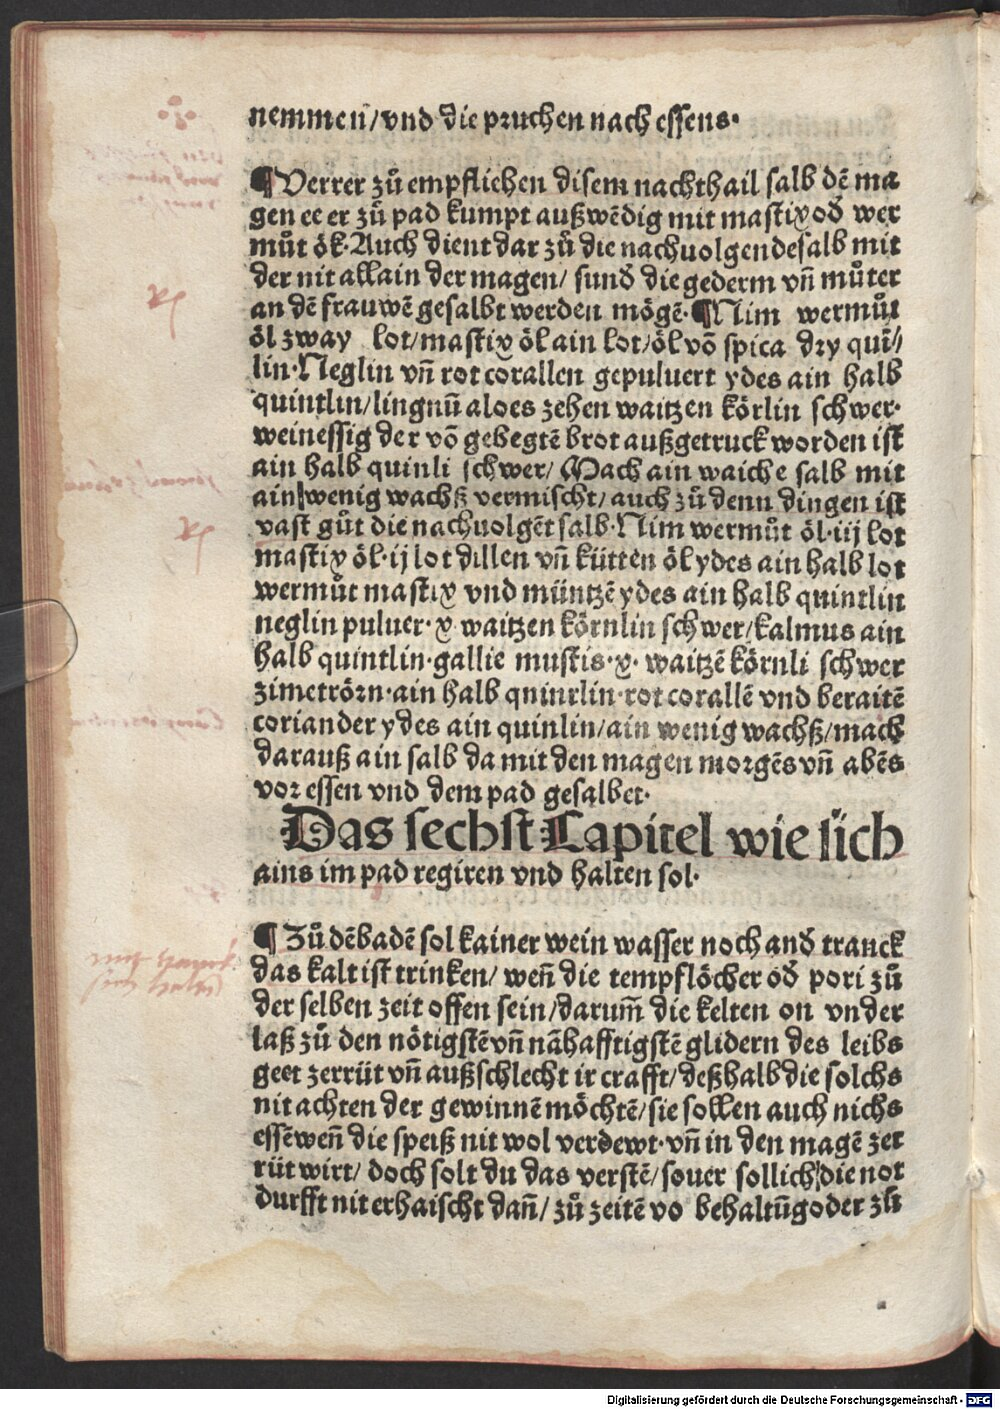 nemmen/vnd die pruchen nach essens·
¶Verrer zů empfliehen disem nachthail salb dē ma
gen ee er zů pad kumpt außwēdig mit mastix od̄ wer
můt ök·Auch dient dar zů die nachuolgende salb mit
der nit allain der magen/ sund̄ die gederm vn̄ můter
an dē frauwē gesalbt werden mögē·¶Nim wermůt
öl zway lot/mastix öl ain lot/öl vō spica dry quī//
lin·Neglin vn̄ rot corallen gepuluert ydes ain halb
quintlin/lingnū aloes zehen waitzen körlin schwer·
weinessig der vō gebegtē brot außgetruck worden ist
ain halb quinli schwer/ Mach ain waiche salb mit
ain wenig wachß vermischt/ auch zů denn dingen ist
vast gůt die nachuolgēt salb·Nim wermůt öl·iij lot
mastix öl·ij lot dillen vn̄ kütten öl ydes ain halb lot
wermůt mastix vnd müntzē ydes ain halb quintlin
neglin puluer·x waitzen körnlin schwer/kalmus ain
halb quintlin·gallie mustis·x· waitzē körnli schwer
zimetrörn·ain halb quintlin·rot corallē vnd beraitē
coriander ydes ain quinlin/ain wenig wachß/mach
darauß ain salb da mit den magen morgēs vn̄ abēs
vor essen vnd dem pad gesalbet·
Das sechst Capitel wie sich
ains im pad regiren vnd halten sol·
¶Zů dē badē sol kainer wein wasser noch and̄ tranck
das kalt ist trinken/ wen̄ die tempflöcher od̄ pori zů
der selben zeit offen sein/darum̄ die kelten on vnder
laß zů den nötigstē vn̄ nāhafftigstē glidern des leibs
geet zerrüt vn̄ außschlecht ir crafft/deßhalb die solchs
nit achten der gewinnē möchtē/sie sollen auch nichs
essē wen̄ die speiß nit wol verdewt·vn̄ in den magē zer
rüt wirt/ doch solt du das verstē/souer sollich die not
durfft nit erhaischt dan̄/ zů zeitē vo behaltūg oder zů
Digitalisierung gefördert durch die Deutsche Forschungsgemeinschaft - DFG